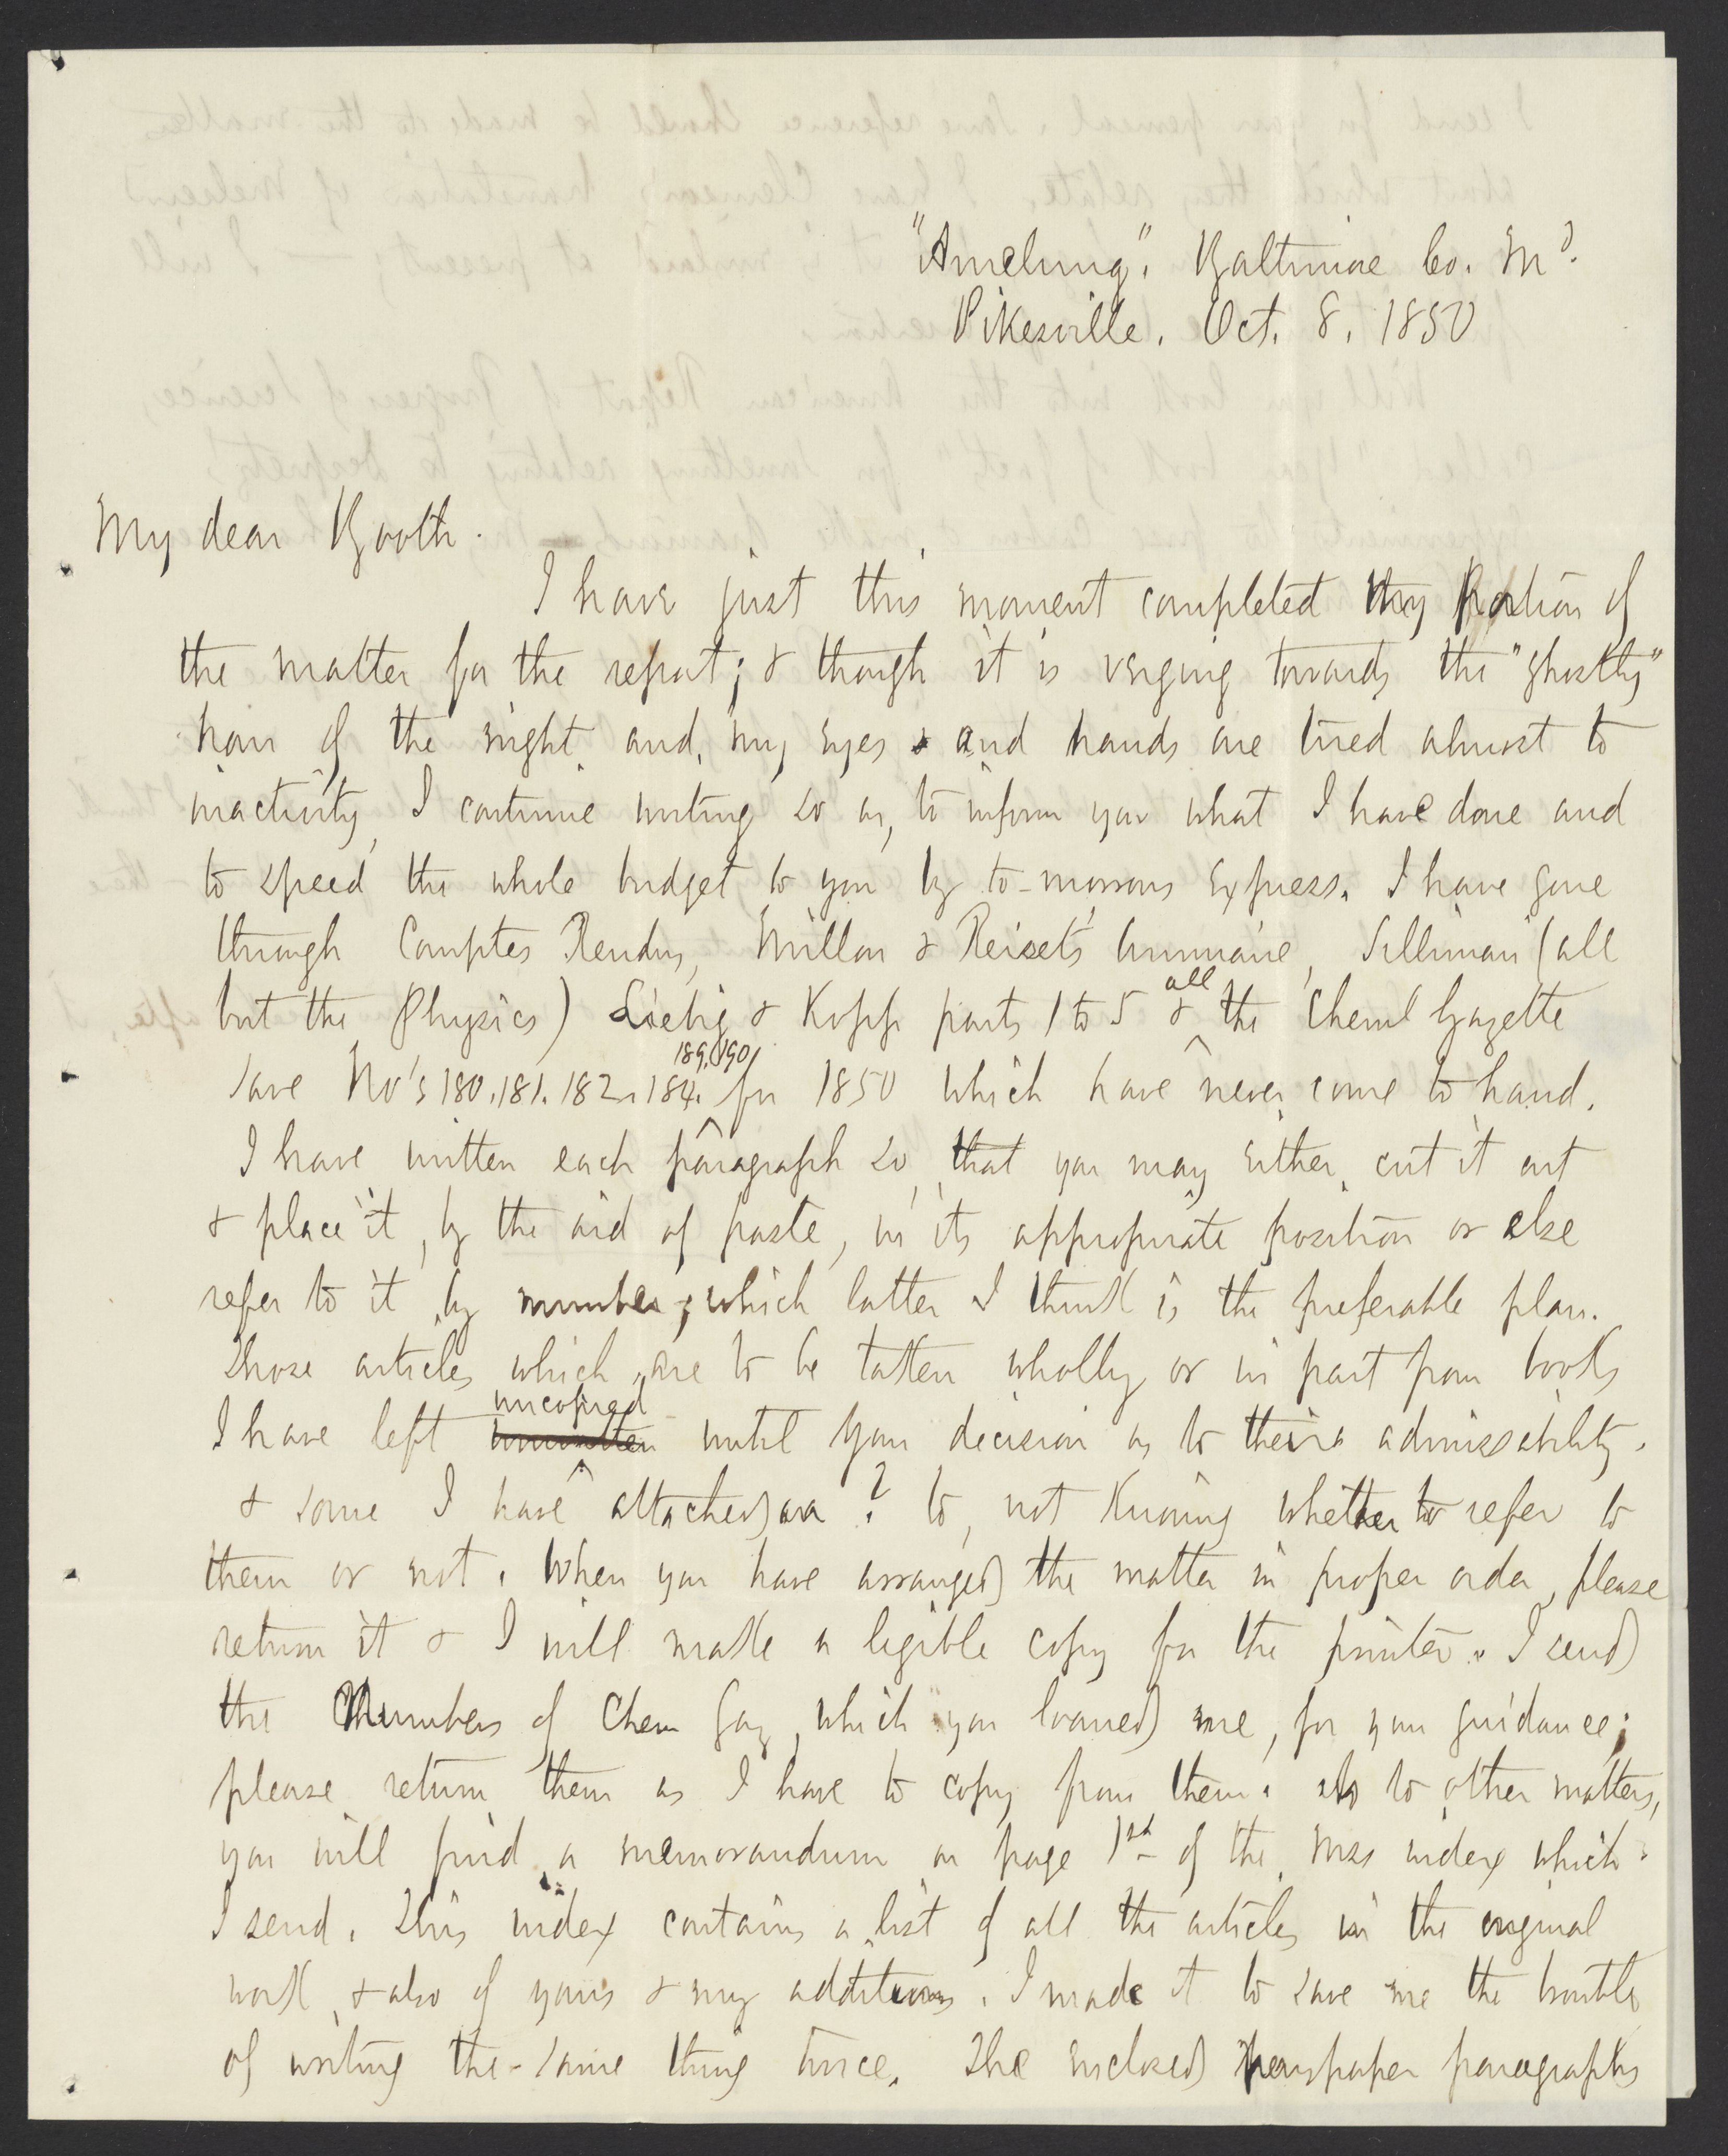 "Amelung". Baltimore Co. Md.
Pikesville. Oct. 8. 1850
My dear Booth.
I have just this moment completed my portion of
the matter for the report; & though it is verging towards the "ghostly"
hour of the night and, my eyes and hands are tired almost to
inactivity, I continue writing so as, to inform you what I have done and
to speed the whole budget to you by to-morrows Express. I have gone
through Comptes Rendus, Millon & Reiset's Annuaire, Silliman (all
but the Physics) Liebig & Kopp parts 1 to 5 & all the Cheml Gazette
save No's 180. 181. 182. 184. 189. 190 for 1850 which have never come to hand.
I have written each paragraph so, that you may either, cut it out
& place it, by the aid of paste, in its appropriate position or else
refer to it by number; which latter I think is the preferable plan.
Those articles which are to be taken wholly or in part from books
I have left unwritten uncopied until your decision as to their admissability.
& some I have attached an ? to, not knowing whether to refer to
them or not. When you have arranged the matter in proper order, please
return it & I will make a legible copy for the printer. I send
the Numbers of Chem Gaz, which you loaned me, for your guidance;
please return them as I have to copy from them. As to other matters,
you will find a memorandum on page 1st of the Mss index which
I send. This index contains a list of all the articles in the original
work, & also of yours & my additions. I made it to save me the trouble
of writing the same thing twice. The enclosed newspaper paragraphs